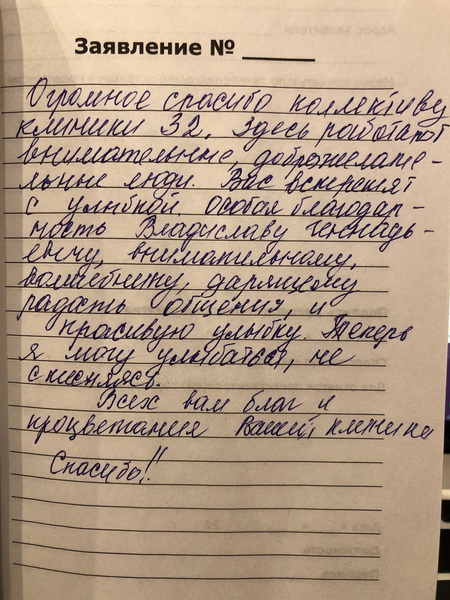 Заявление № ______
Огромное спасибо коллективу
клиники 32. Здесь работают
внимательные, доброжелате-
льные люди. Вас встретят
с улыбкой. Особая благодар-
ность Владиславу Геннадь-
евичу, внимательному,
волшебнику, дарящему
радость общения, и
красивую улыбку. Теперь
я могу улыбаться, не
стесняясь.
Всех вам благ и
процветания Вашей клинике
Спасибо!!